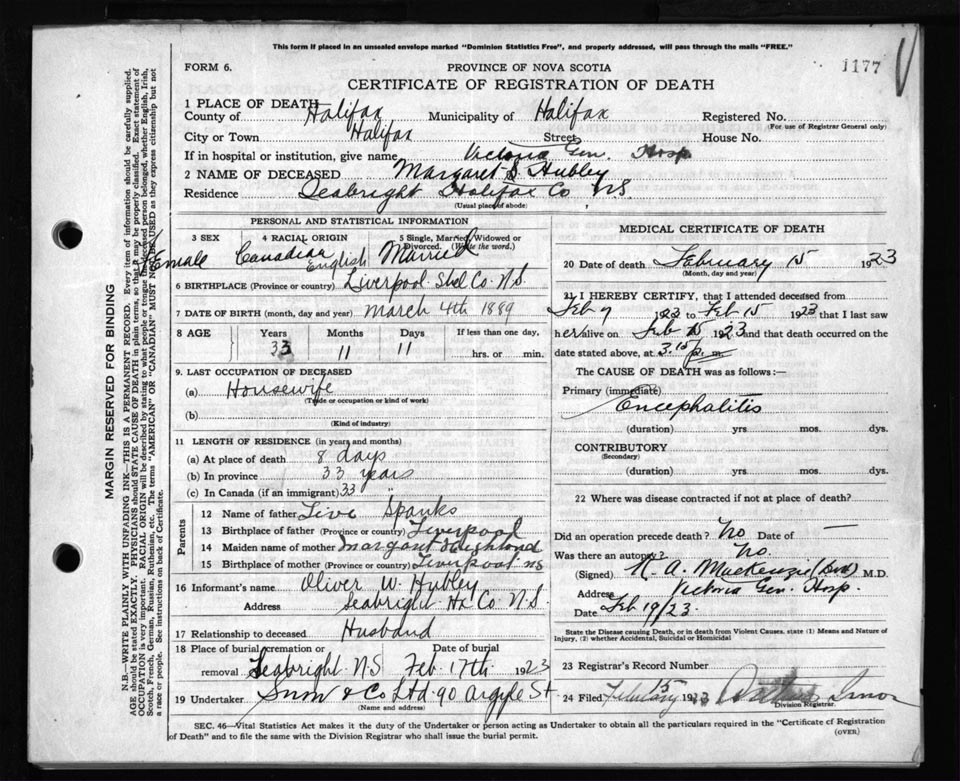 This form if placed in an unsealed envelope marked "Dominion Statistics Free", and properly addressed, will pass through the mails "FREE."
FORM 6.
PROVINCE OF NOVA SCOTIA
1177
CERTIFICATE OF REGISTRATION OF DEATH
1 PLACE OF DEATH
County of Halifax Municipality of Halifax Registered No.
(For use of Registrar General only)
City or Town Halifax Street House No.
If in hospital or institution, give name Victoria Gen. Hosp
2 NAME OF DECEASED Margaret S. Hubley
Residence Seabright Halifax Co N.S.
(Usual place of abode)
PERSONAL AND STATISTICAL INFORMATION
3 SEX 4 RACIAL ORIGIN 5 Single, Married, Widowed or Divorced. (Write the word.)
Female Canadian English Married
6 BIRTHPLACE (Province or country) Liverpool Shel Co. N.S.
7 DATE OF BIRTH (month, day and year) March 4th 1889
8 AGE Years Months Days If less than one day,
33 11 11 hrs. or min.
9. LAST OCCUPATION OF DECEASED
(a) Housewife
(Trade or occupation or kind of work)
(b)
(Kind of industry)
11 LENGTH OF RESIDENCE (in years and months)
(a) At place of death 8 days
(b) In province 33 years
(c) In Canada (if an immigrant) 33
Parents
12 Name of father Spanks
13 Birthplace of father (Province or country) Liverpool
14 Maiden name of mother Margaret
15 Birthplace of mother (Province or country) Liverpool NS
16 Informant's name Oliver W. Hubley
Address Seabright Hx Co N.S.
17 Relationship to deceased Husband
18 Place of burial, cremation or removal Date of burial
Seabright N.S Feb. 17th 1923
19 Undertaker Snow & Co Ltd. 90 Argyle St.
(Name and address)
MEDICAL CERTIFICATE OF DEATH
20 Date of death February 15 1923
(Month, day and year)
21 I HEREBY CERTIFY, that I attended deceased from
Feb 7 1923 to Feb 15 1923 that I last saw
her alive on Feb 15 1923 and that death occurred on the
date stated above, at 3.15 p. m.
The CAUSE OF DEATH was as follows:—
Primary (immediate)
Encephalitis
(duration) yrs mos. dys.
CONTRIBUTORY
(Secondary)
(duration) yrs. mos. dys.
22 Where was disease contracted if not at place of death?
Did an operation precede death? No Date of —
Was there an autopsy? No.
(Signed) A. Mackenzie M.D.
Address Victoria Gen. Hosp.
Date Feb 19/23.
State the Disease causing Death, or in death from Violent Causes, state (1) Means and Nature of
Injury, (2) whether Accidental, Suicidal or Homicidal
23 Registrar's Record Number
24 Filed February 15 1923
Division Registrar.
SEC. 46—Vital Statistics Act makes it the duty of the Undertaker or person acting as Undertaker to obtain all the particulars required in the "Certificate of Registration
of Death" and to file the same with the Division Registrar who shall issue the burial permit.
(OVER)
MARGIN RESERVED FOR BINDING
N.B.—WRITE PLAINLY WITH UNFADING INK—THIS IS A PERMANENT RECORD. Every item of information should be carefully supplied.
AGE should be stated EXACTLY. PHYSICIANS should STATE CAUSE OF DEATH in plain terms, so that it may be properly classified. Exact statement of
OCCUPATION is very important. RACIAL ORIGIN will be described by stating to what people or tongue the deceased person belonged, whether English, Irish,
Scotch, French, German, Russian, Ruthenian, etc. The terms "AMERICAN" OR "CANADIAN" MUST NOT BE USED as they express citizenship but not
a race or people. See instructions on back of Certificate.